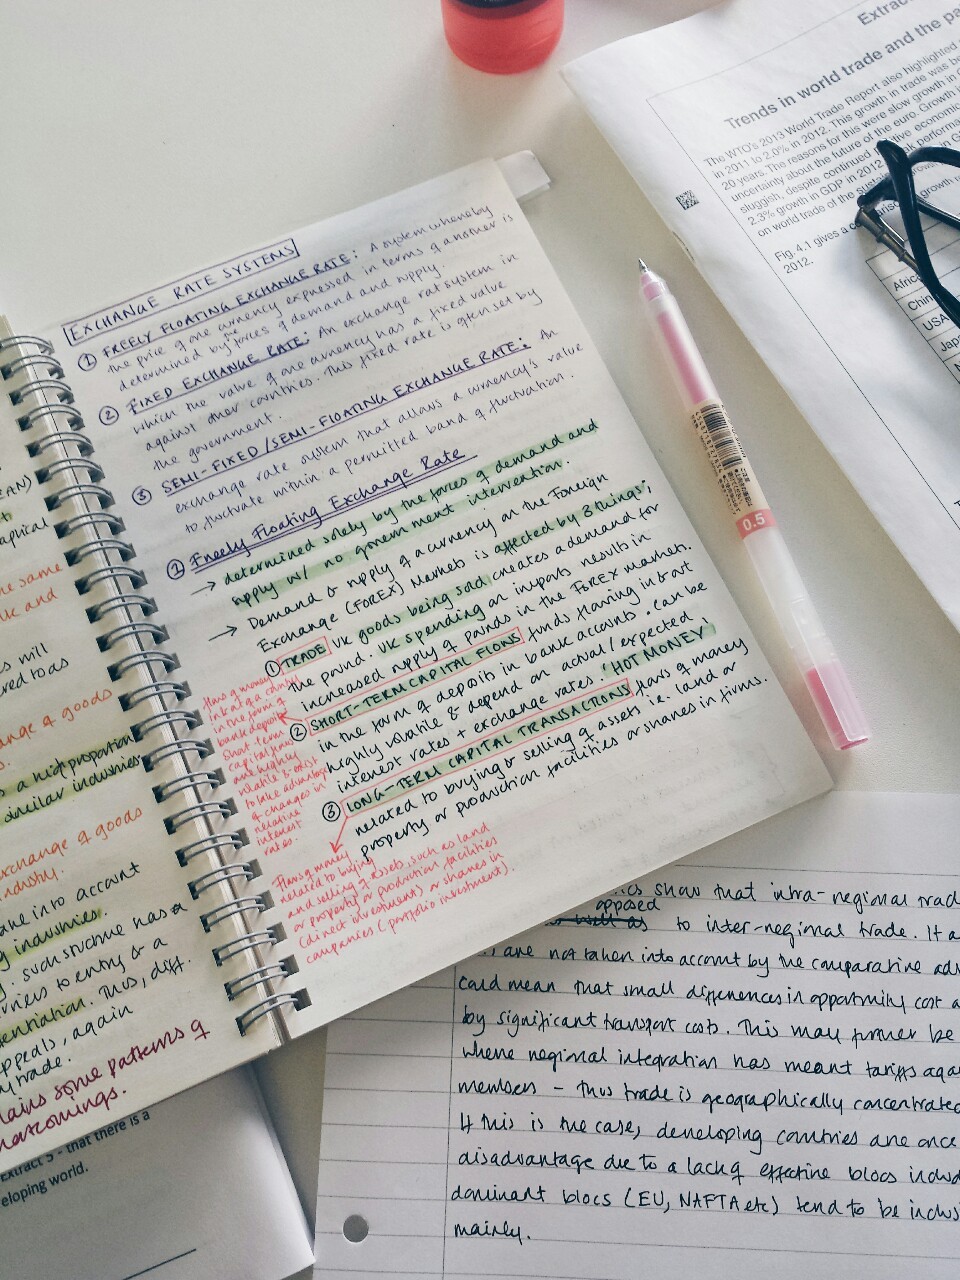 EXCHANGE RATE SYSTEMS
① FREELY FLOATING EXCHANGE RATE: A system whereby
the price of one currency expressed in terms of another is
determined by forces of demand and supply.
② FIXED EXCHANGE RATE: An exchange rate system in
which the value of one currency has a fixed value
against other countries. This fixed rate is often set by
the government.
③ SEMI-FIXED/SEMI-FLOATING EXCHANGE RATE: An
exchange rate system that allows a currency's value
to fluctuate within a permitted band of fluctuation.
① Freely Floating Exchange Rate
→ determined solely by the forces of demand and
supply w/ no government intervention.
→ Demand & supply of a currency on the Foreign
Exchange (FOREX) Markets is affected by 3 things;
① TRADE UK goods being sold creates a demand for
the pound. UK spending on imports results in
increased supply of pounds in the FOREX markets.
② SHORT-TERM CAPITAL FLOWS funds flowing in & out
in the form of deposits in bank accounts. can be
highly volatile & depend on actual/expected
interest rates + exchange rates. 'HOT MONEY'
③ LONG-TERM CAPITAL TRANSACTIONS flows of money
related to buying & selling of assets i.e. land or
property or production facilities or shares in firms.
flows of money
in & out of a country
in the form of
bank deposits
short-term
capital flows
are highly
volatile & exist
to take advantage
of changes in
relative
interest
rates.
flows of money
related to buying
and selling of assets, such as land
or property or production facilities
(direct investment) or shares in
companies (portfolio investment).
AN)
aphical
the same
UK and
s will
red to as
ange of goods
s a high proportion
similar industries
exchange of goods
industry.
into account
industries.
such structure has a
to entry & a
Thus, diff.
appeals, again
trade.
some patterns of
Extract 5 - that there is a
eloping world.
Extrac
Trends in world trade and the pa
The WTO's 2013 World Trade Report also highlighted
in 2011 to 2.0% in 2012. This growth in trade was be
20 years. The reasons for this were slow growth in
uncertainty about the future of the euro. Growth
sluggish, despite continued economic
2.3% growth in GDP in 2012 performa
on world trade of the growth
Fig. 4.1 gives a
2012.
Africa
Chin
USA
Japa
0.5
show that intra-regional trad
opposed
well as to inter-regional trade. If a
are not taken into account by the comparative adv
could mean that small differences in opportunity cost a
by significant transport costs. This may further be
where regional integration has meant tariffs aga
members - thus trade is geographically concentrated
If this is the case, developing countries are once
disadvantage due to a lack of effective blocs
dominant blocs (EU, NAFTA etc) tend to be
mainly.